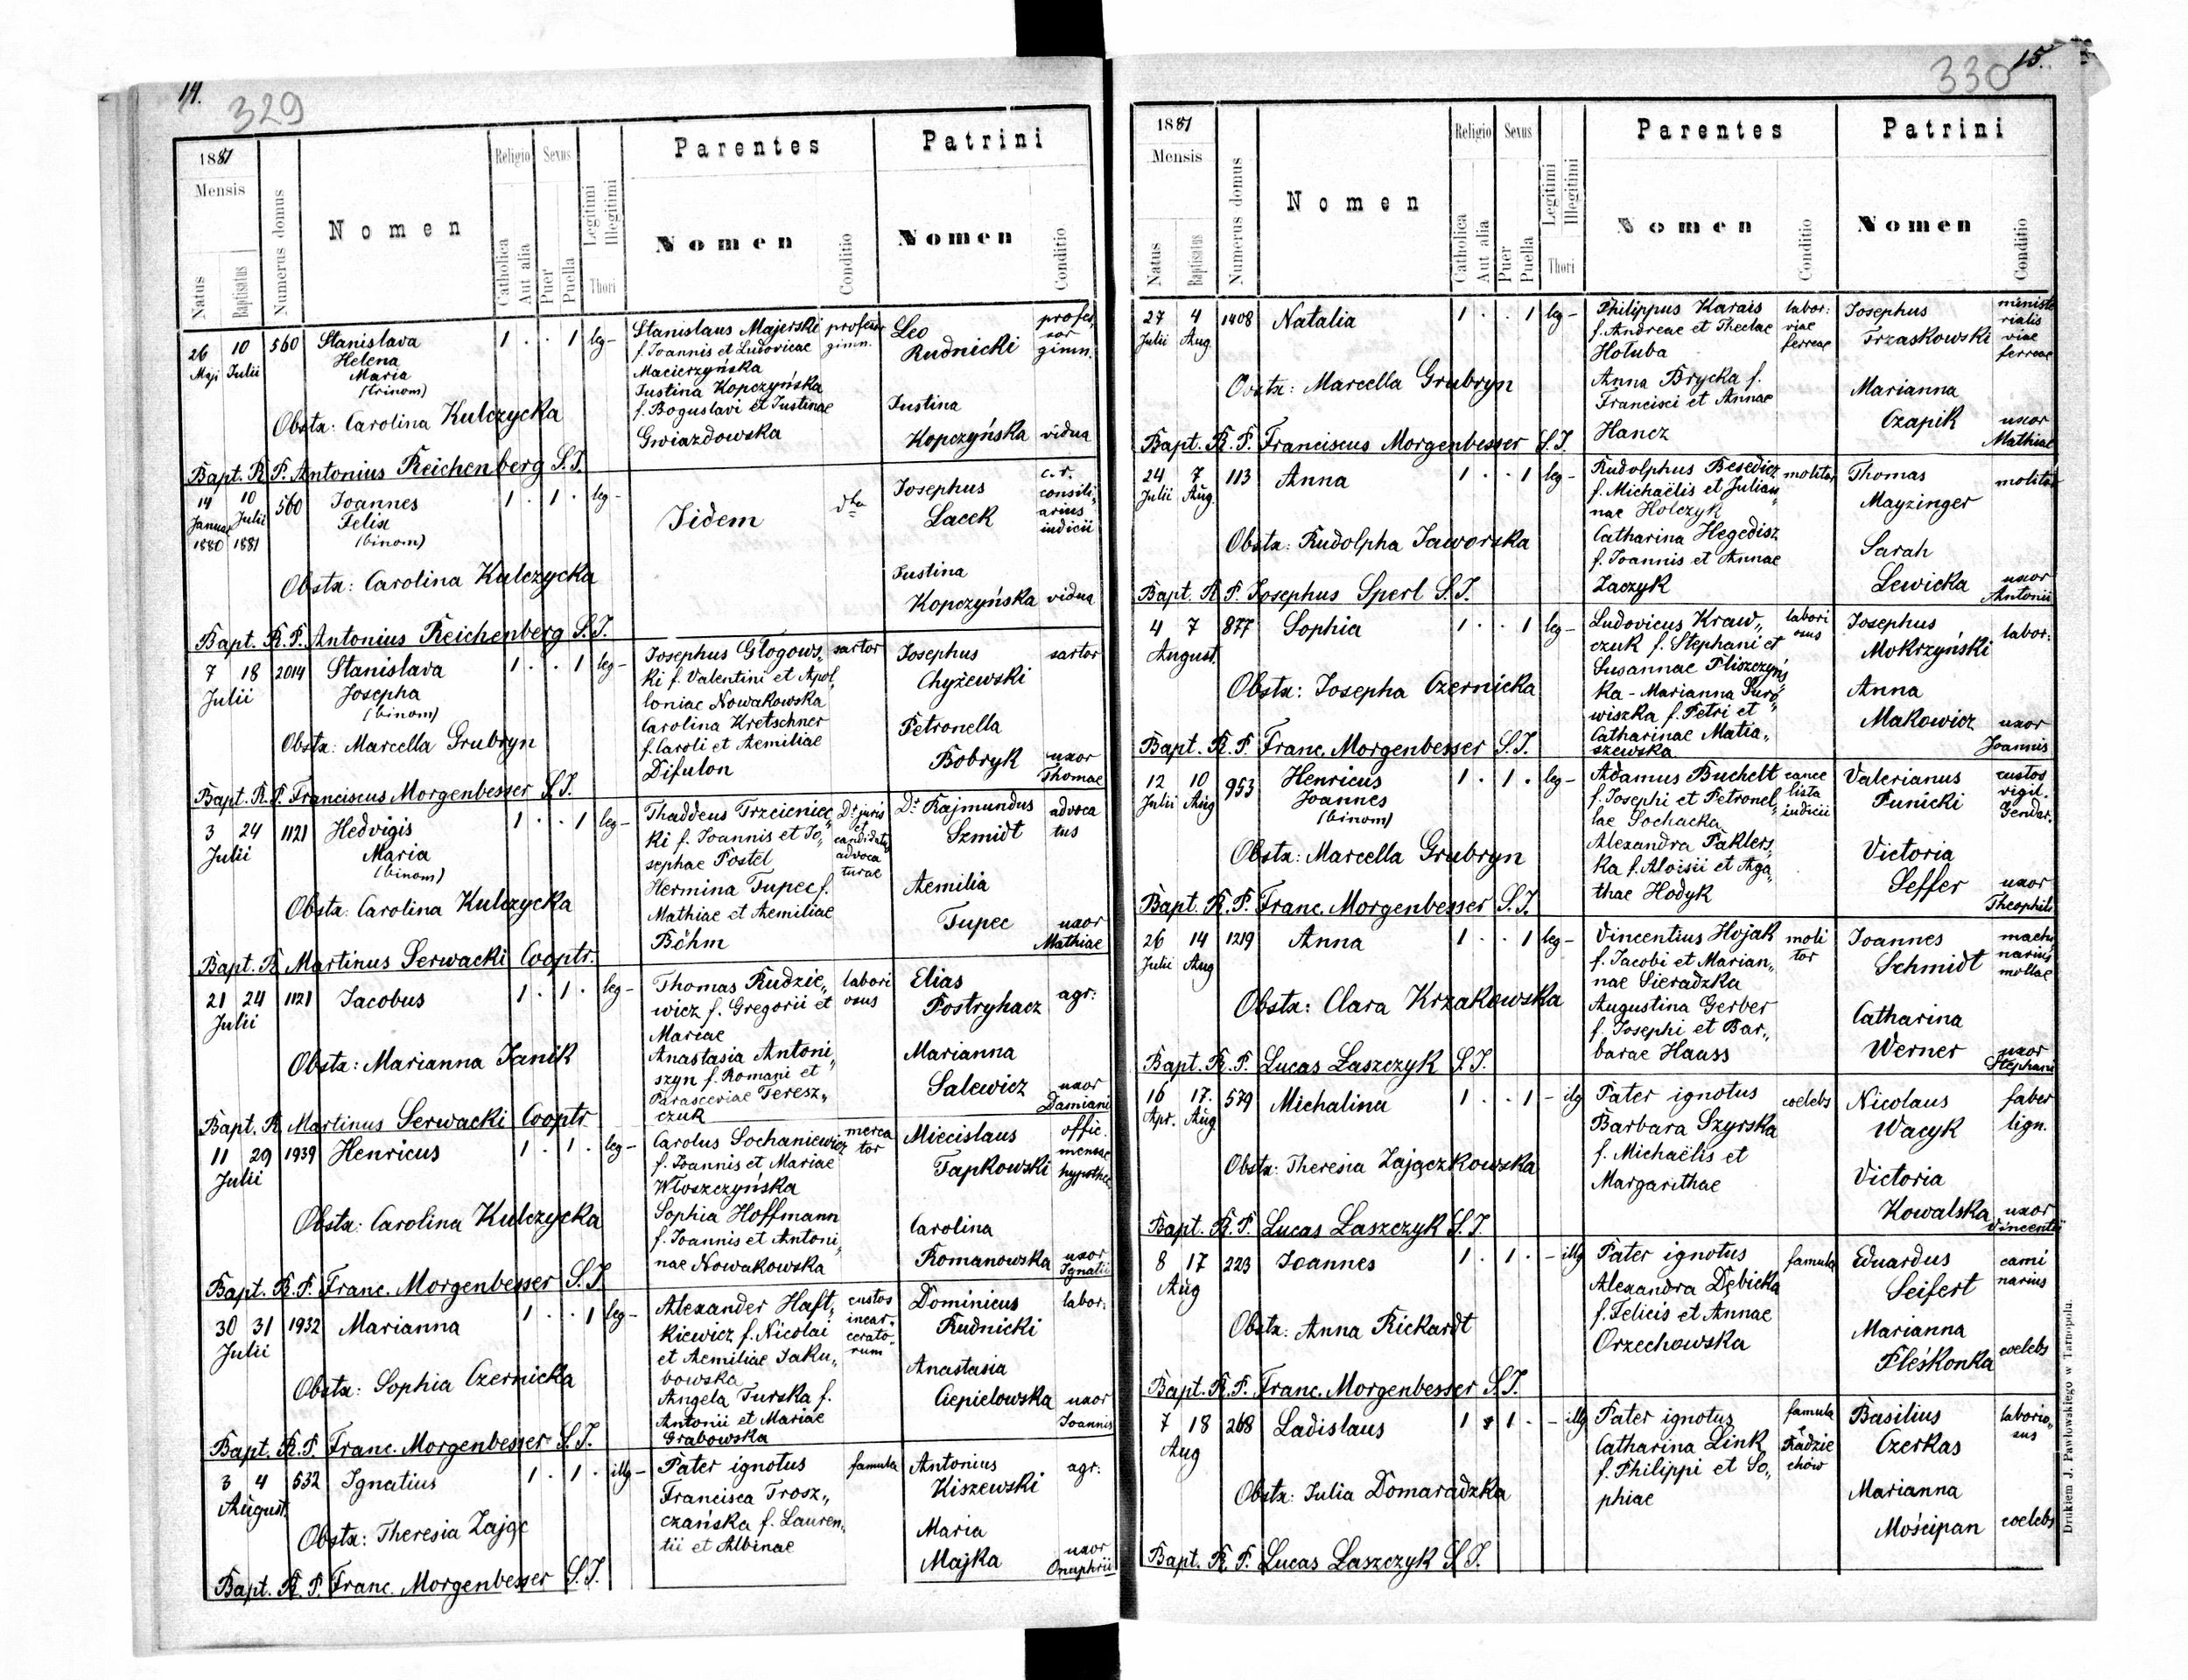 14.
329
1881
Mensis
Natus
Baptisatus
Numerus domus
Nomen
Religio
Catholica
Aut alia
Sexus
Puer
Puella
Legitimi
Illegitimi
Thori
Parentes
Nomen
Conditio
Patrini
Nomen
Conditio
26 Maji
10 Julii
560
Stanislava
Helena
Maria
(trinom)
1 . . 1 leg-
Stanislaus Majerski
f. Joannis et Ludovicae
Macierzyńska
Justina Kopczyńska
f. Boguslavi et Justinae
Gwiazdowska
professor
gimn.
Leo
Rudnicki
profes„
sor
gimn.
Justina
Kopczyńska vidua
Obstx: Carolina Kulczycka
Bapt. R. P. Antonius Reichenberg S.J.
14 Januar 1880
10 Julii 1881
560
Joannes
Felix
(binom)
1 . 1 . leg-
Iidem
dto
Josephus
Lacek
c.r.
consili„
arius
iudicii
Justina
Kopczyńska vidua
Obstx: Carolina Kulczycka
Bapt. R. P. Antonius Reichenberg S.J.
7 18
Julii
2014
Stanislava
Josepha
(binom)
1 . . 1 leg-
Josephus Głogows„
ki f. Valentini et Apol„
loniae Nowakowska
Carolina Kretschner
f. Caroli et Aemiliae
Difulon
sartor
Josephus
Chyżewski
sartor
Petronella
Bobryk
uxor
Thomae
Obstx: Marcella Grubryn
Bapt. R. P. Franciscus Morgenbesser S.J.
3 24
Julii
1121
Hedvigis
Maria
(binom)
1 . . 1 leg-
Thaddeus Trzcieniec„
ki f. Joannis et Jo„
sephae Postel
Hermina Tupec f.
Mathiae et Aemiliae
Böhm
Dr juris
et
candidatus
advoca
turae
Dr Rajmundus
Szmidt
advoca
tus
Aemilia
Tupec
uxor
Mathiae
Obstx: Carolina Kulczycka
Bapt. R. Martinus Serwacki Cooptr.
21 24
Julii
1121
Jacobus
1 . 1 . leg-
Thomas Rudzie„
wicz f. Gregorii et
Mariae
Anastasia Antoni„
szyn f. Romani et
Parasceviae Teresz„
czuk
labori
osus
Elias
Postryhacz
agr:
Marianna
Salewicz
uxor
Damiani
Obstx: Marianna Janik
Bapt. R. Martinus Serwacki Cooptr
11 29
Julii
1939
Henricus
1 . 1 . leg-
Carolus Sochaniewicz
f. Joannis et Mariae
Włoszczyńska
Sophia Hoffmann
f. Joannis et Antoni„
nae Nowakowska
merca
tor
Miecislaus
Tapkowski
offic.
mensae
hypothec.
Carolina
Romanowska
uxor
Ignatii
Obstx: Carolina Kulczycka
Bapt. R. P. Franc. Morgenbesser S.J.
30 31
Julii
1932
Marianna
1 . . 1 leg-
Alexander Haft„
kiewicz f. Nicolai
et Aemiliae Jaku„
bowska
Angela Turska f.
Antonii et Mariae
Grabowska
custos
incar„
cerato„
rum
Dominicus
Rudnicki
labor:
Anastasia
Ciepielowska
uxor
Joannis
Obstx: Sophia Czernicka
Bapt. R. P. Franc. Morgenbesser S.J.
3 4
August.
532
Ignatius
1 . 1 . illg-
Pater ignotus
Francisca Trosz„
czańska f. Lauren„
tii et Albinae
famula
Antonius
Kiszewski
agr:
Maria
Majka
uxor
Onuphrii
Obstx: Theresia Zając
Bapt. R. P. Franc. Morgenbesser S.J.
330
15.
1881
Mensis
Natus
Baptisatus
Numerus domus
Nomen
Religio
Catholica
Aut alia
Sexus
Puer
Puella
Legitimi
Illegitimi
Thori
Parentes
Nomen
Conditio
Patrini
Nomen
Conditio
27 Julii
4 Aug.
1408
Natalia
1 . . 1 leg-
Philippus Karais
f. Andreae et Theclae
Hołuba
Anna Brycka f.
Francisci et Annae
Hancz
labor:
viae
ferreae
Josephus
Trzaskowski
ministe
rialis
viae
ferreae
Marianna
Czapik
uxor
Mathiae
Obstx: Marcella Grubryn
Bapt. R. P. Franciscus Morgenbesser S.J.
24 Julii
7 Aug.
113
Anna
1 . . 1 leg-
Rudolphus Besedicz
f. Michaëlis et Julian„
nae Holczyk
Catharina Hegedisz
f. Joannis et Annae
Zaczyk
molitor
Thomas
Mayzinger
molitor
Sarah
Lewicka
uxor
Antonii
Obstx: Rudolpha Jaworska
Bapt. R. P. Josephus Sperl S.J.
4 7
August.
877
Sophia
1 . . 1 leg-
Ludovicus Kraw„
czuk f. Stephani et
Susannae Pliszczyńs„
ka - Marianna Suro„
wiszka f. Petri et
Catharinae Matia„
szewska
labori
osus
Josephus
Mokrzyński
labor:
Anna
Makowicz
uxor
Joannis
Obstx: Josepha Czernicka
Bapt. R. P. Franc. Morgenbesser S.J.
12 Julii
10 Aug
953
Henricus
Joannes
(binom)
1 . 1 . leg-
Adamus Buchelt
f. Josephi et Petronel„
lae Sochacka
Alexandra Paklers„
ka f. Aloisii et Aga„
thae Hodyk
cance
lista
iudicii
Valerianus
Punicki
custos
vigil.
Gendar.
Victoria
Seffer
uxor
Theophili
Obstx: Marcella Grubryn
Bapt. R. P. Franc. Morgenbesser S.J.
26 Julii
14 Aug
1219
Anna
1 . . 1 leg-
Vincentius Hojak
f. Jacobi et Marian„
nae Sieradzka
Augustina Gerber
f. Josephi et Bar„
barae Hauss
moli
tor
Joannes
Schmidt
machi
narius
mollae
Catharina
Werner
uxor
Stephani
Obstx: Clara Krzakowska
Bapt. R. P. Lucas Łaszczyk S.J.
16 Apr.
17. Aug
579
Michalina
1 . . 1 - illg
Pater ignotus
Barbara Szyrska
f. Michaëlis et
Margarithae
coelebs
Nicolaus
Wacyk
faber
lign.
Victoria
Kowalska
uxor
Vincentii
Obstx: Theresia Zajączkowska
Bapt. R. P. Lucas Łaszczyk S.J.
8 17
Aug
223
Joannes
1 . 1 . - illg
Pater ignotus
Alexandra Dębicka
f. Felicis et Annae
Orzechowska
famula
Eduardus
Seifert
cami
narius
Marianna
Pleśkonka
coelebs
Obstx: Anna Rickardt
Bapt. R. P. Franc. Morgenbesser S.J.
7 18
Aug
268
Ladislaus
1 . 1 . - illg
Pater ignotus
Catharina Link
f. Philippi et So„
phiae
famula
Radzie
chów
Basilius
Czerkas
laborio„
sus
Marianna
Mościpan
coelebs
Obstx: Julia Domaradzka
Bapt. R. P. Lucas Łaszczyk S.J.
Drukiem J. Pawłowskiego w Tarnopolu.